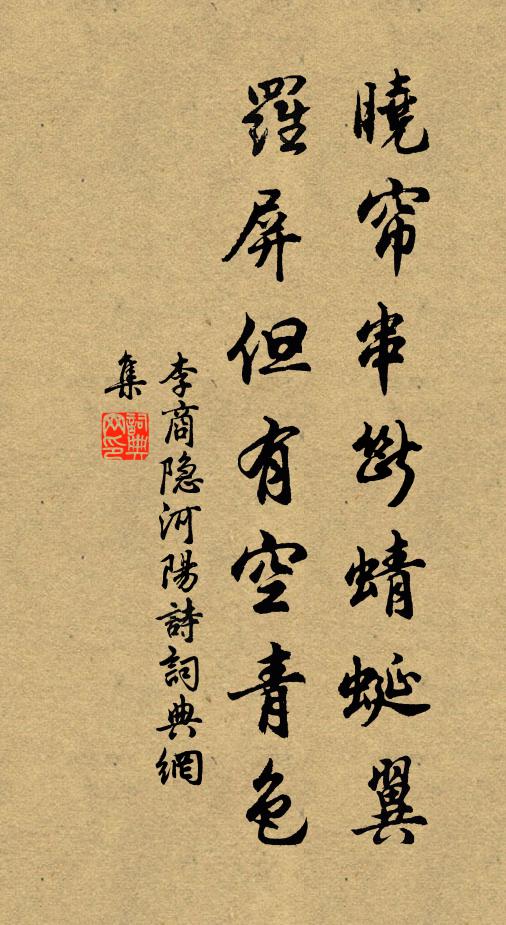 曉帘串斷蜻蜓翼
羅屏但有空青色
李商隐河陽詩詞典網
集
詞典網印